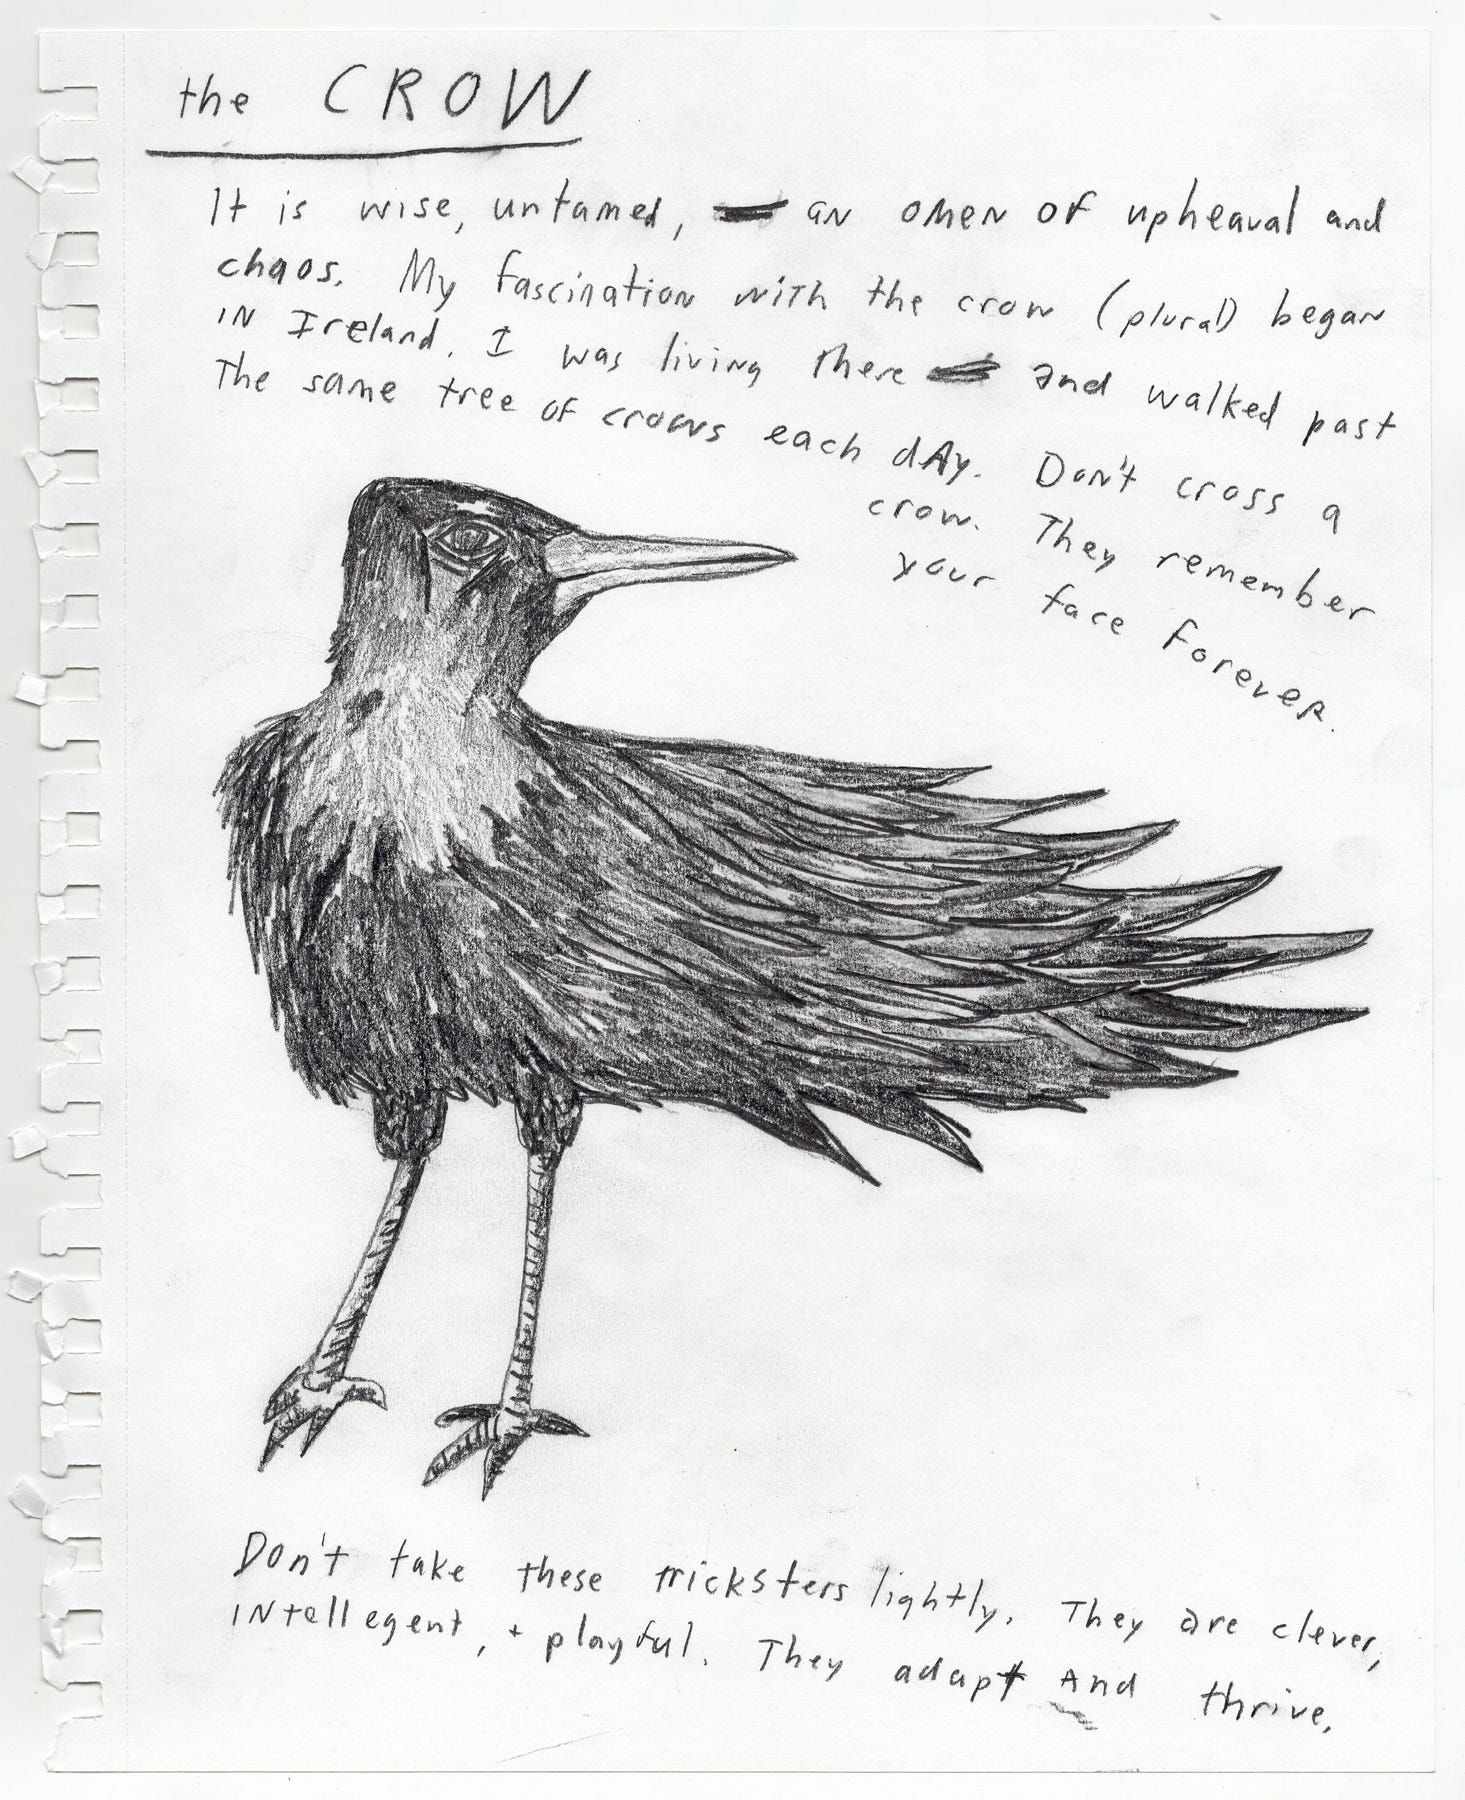 the CROW
It is wise, untamed, an omen of upheaval and
chaos. My fascination with the crow (plural) began
in Ireland. I was living there and walked past
the same tree of crows each dAy. Don't cross a
crow. They remember
your face forever.
Don't take these tricksters lightly. They are clever,
intellegent, + playful. They adapt And thrive.